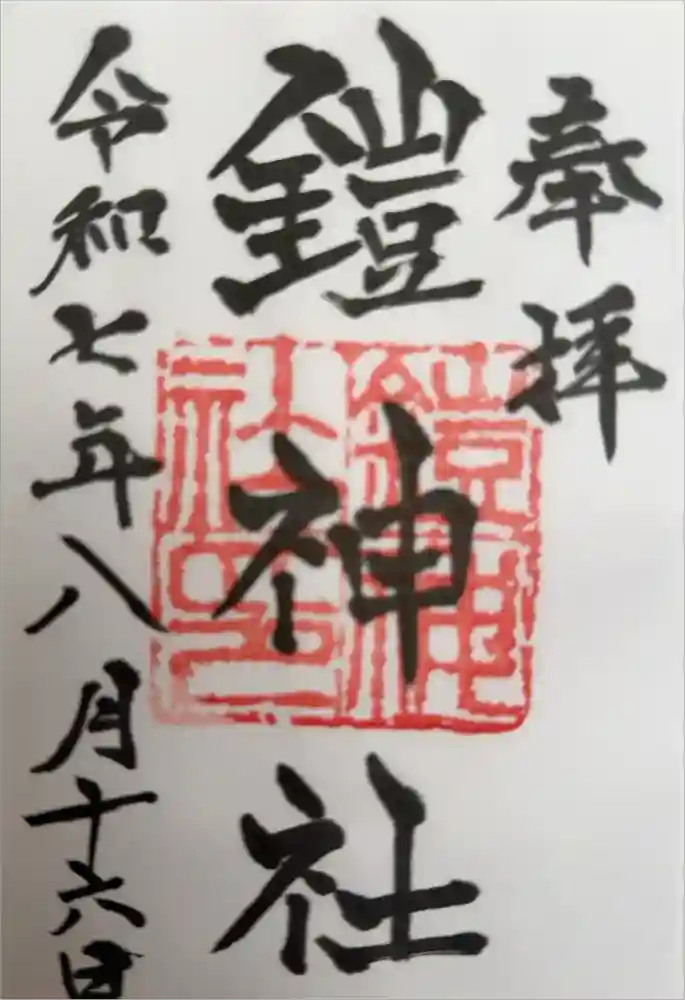 奉拝
鎧神社
鎧神社印
令和七年八月十六日